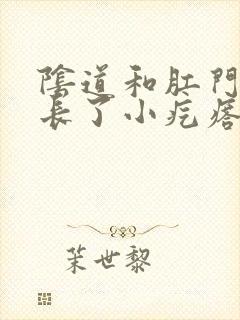 陰道和肛門
長了小疙瘩
茉世黎